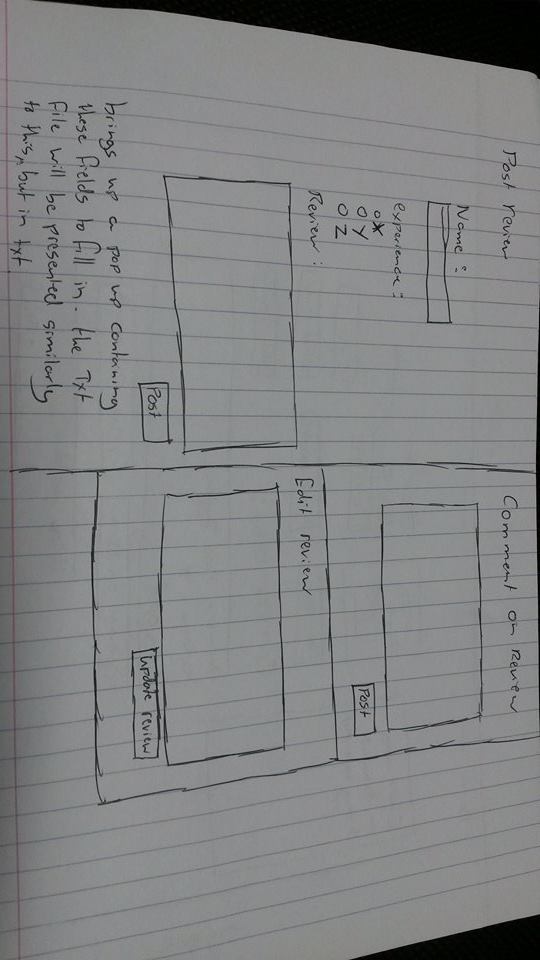 Post review
Name :
experience :
o X
o Y
o Z
Review :
Post
brings up a pop up containing
these fields to fill in. the Txt
file will be presented similarly
to this, but in txt
Comment on Review
Post
Edit review
update review